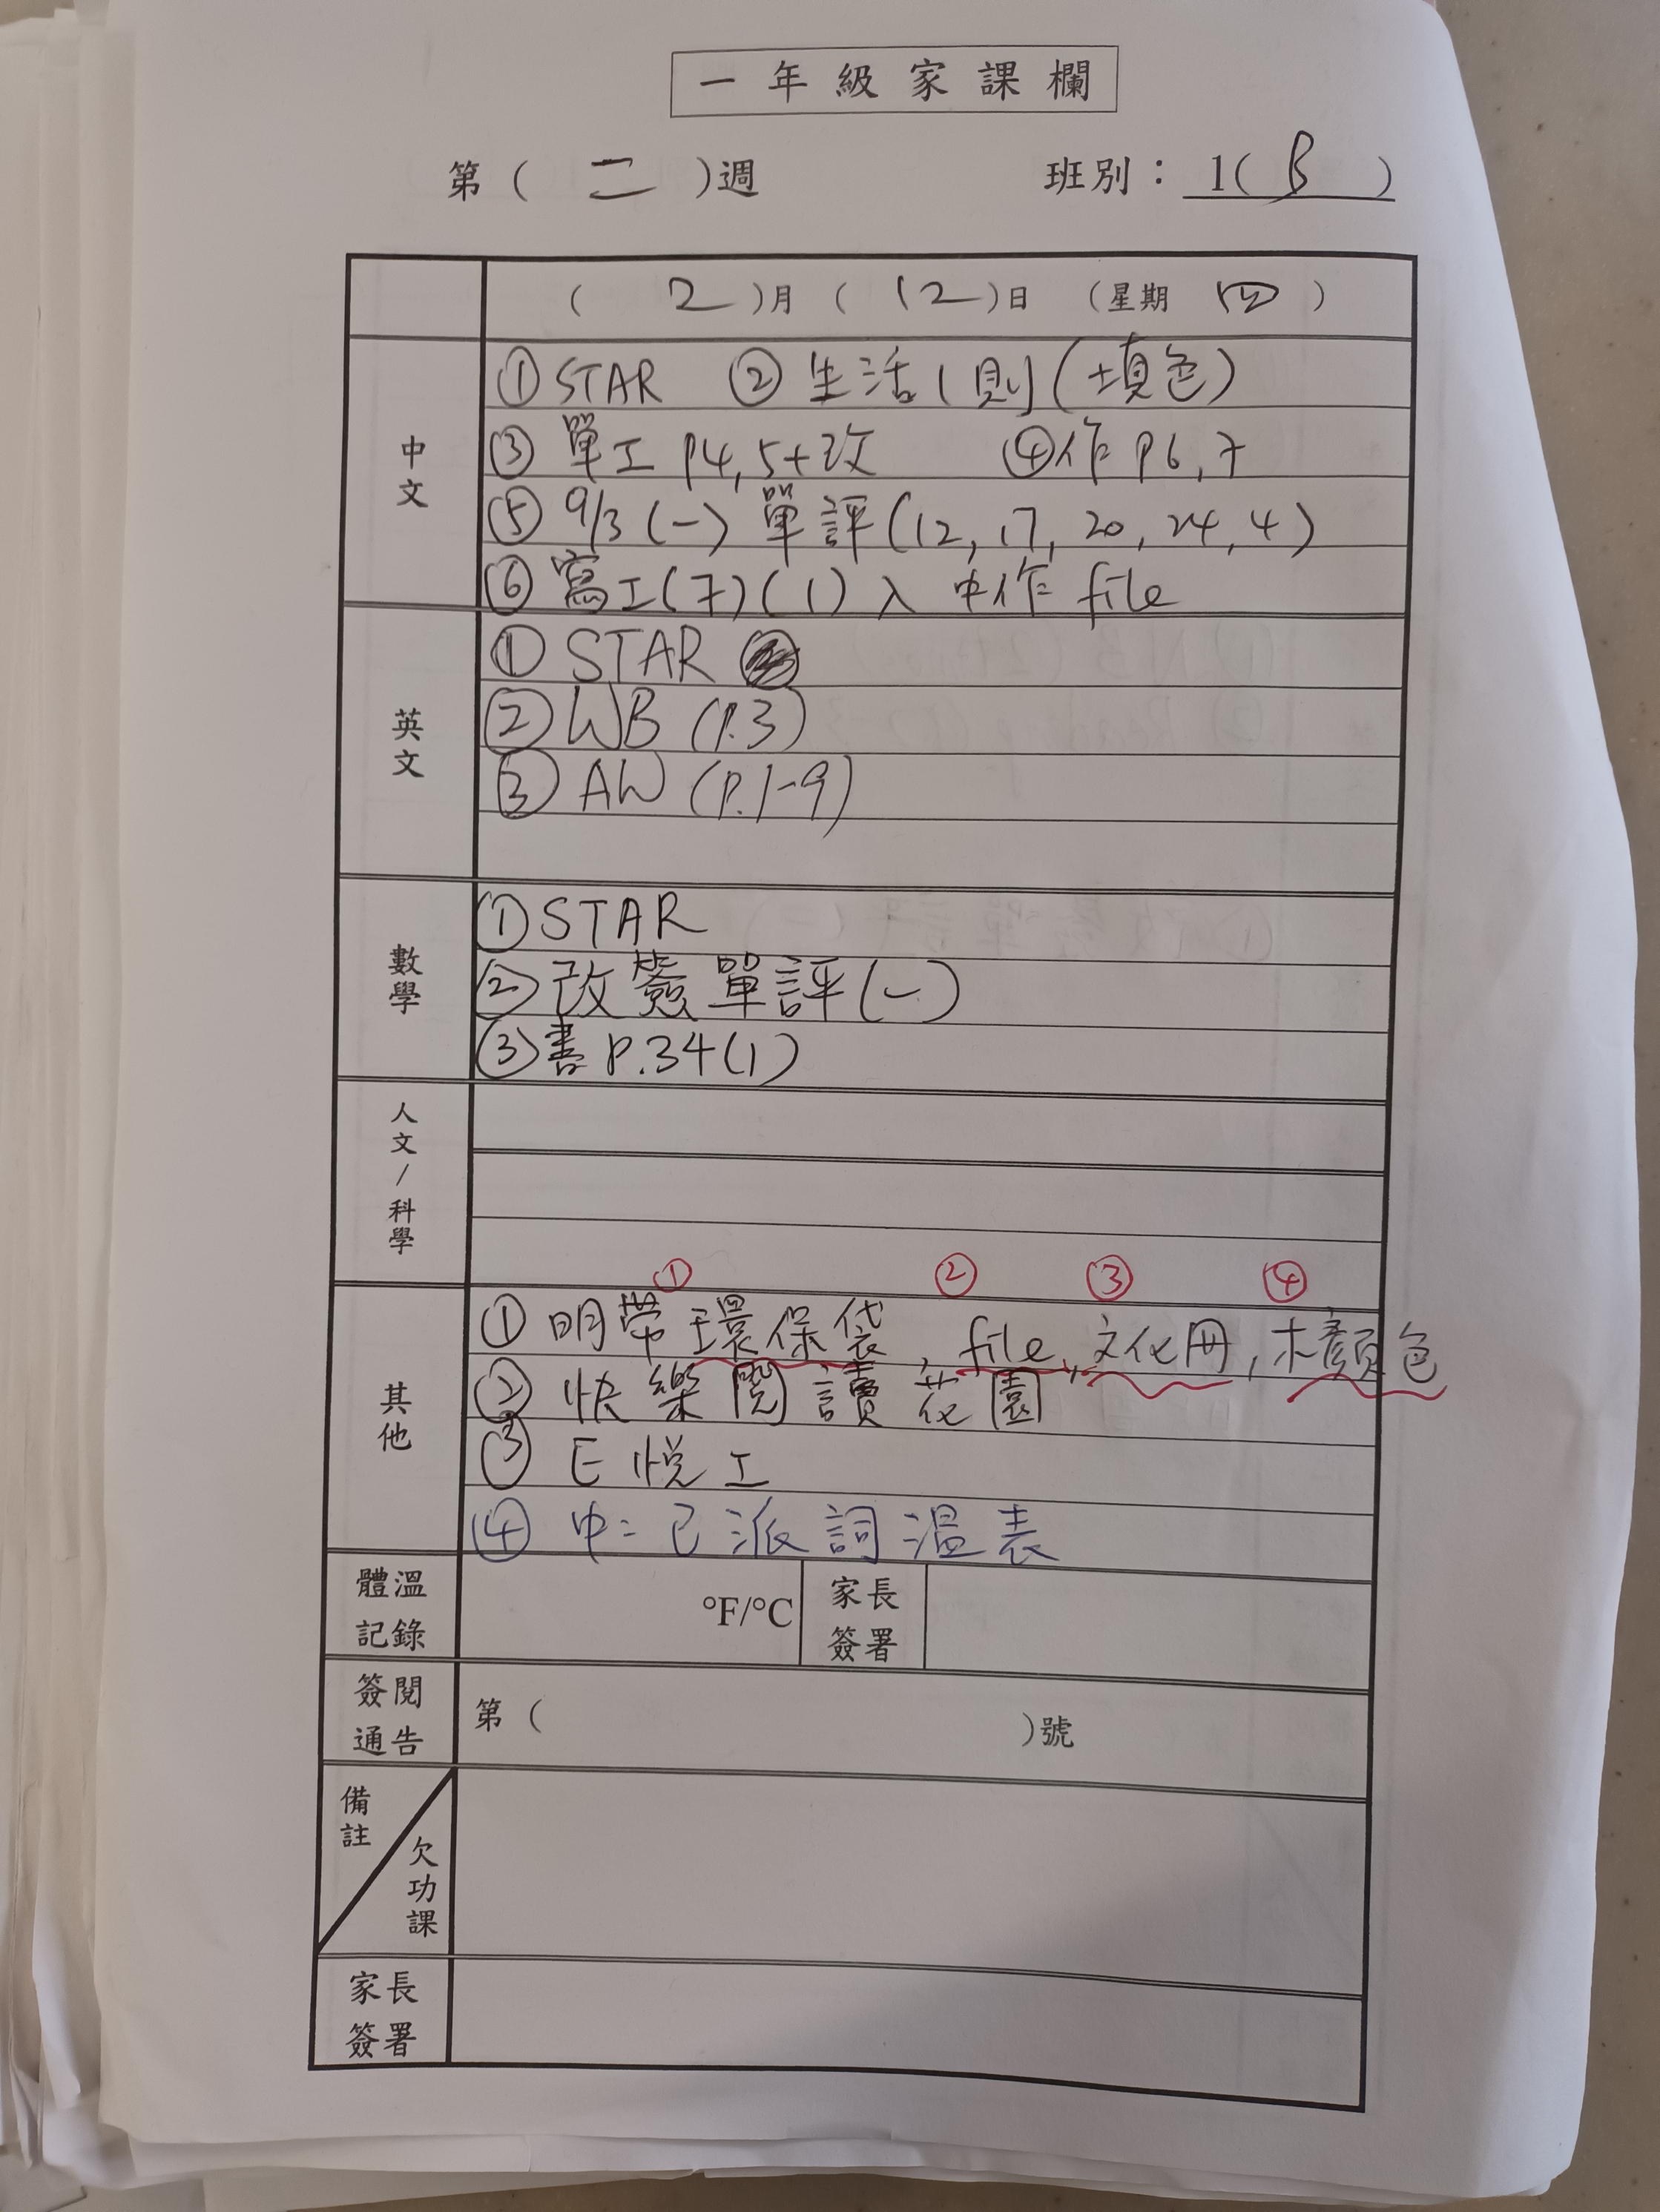 一年級家課欄
第（二）週 班別：1(B)
（2）月（12）日（星期四）
中文
①STAR ②生活1則(填色)
③單工P4,5+改 ④作P6,7
⑤9/3(一)單評(12,17,20,24,4)
⑥寫工(7)(1)入中作file
英文
①STAR
②WB (P.3)
③AW (P.1-9)
數學
①STAR
②改簽單評(一)
③書P.34(1)
人文/科學
① ② ③ ④
其他
①明帶環保袋, file, 文化冊, 木顏色
②快樂閱讀花園
③E悅工
④中:已派詞溫表
體溫記錄 °F/°C 家長簽署
簽閱通告 第（ ）號
備註 欠功課
家長簽署